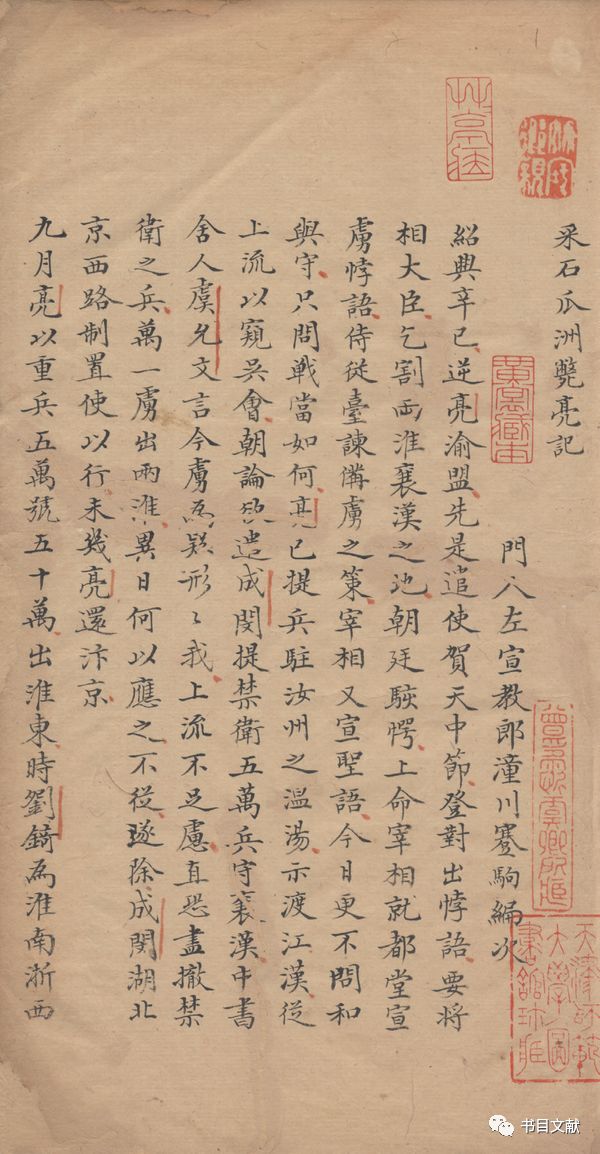 采石瓜洲斃亮記
門人左宣教郎潼川蹇駒編次
紹興辛巳逆亮渝盟先是遣使賀天中節登對出悖語要將
相大臣乞割両淮襄漢之地朝廷駭愕上命宰相就都堂宣
虜悖語侍從臺諫備虜之策宰相又宣聖語今日更不問和
與守只問戰當如何亮已提兵駐汝州之溫湯示渡江漢從
上流以窺吳會朝論欲遣成閔提禁衛五萬兵守襄漢中書
舍人虞允文言今虜為疑形〻我上流不足慮直恐盡撤禁
衛之兵萬一虜出兩淮異日何以應之不從遂除成閔湖北
京西路制置使以行未幾亮還汴京
九月亮以重兵五萬號五十萬出淮東時劉錡為淮南浙西
天津師範
大學圖
書館珍藏
书目文献